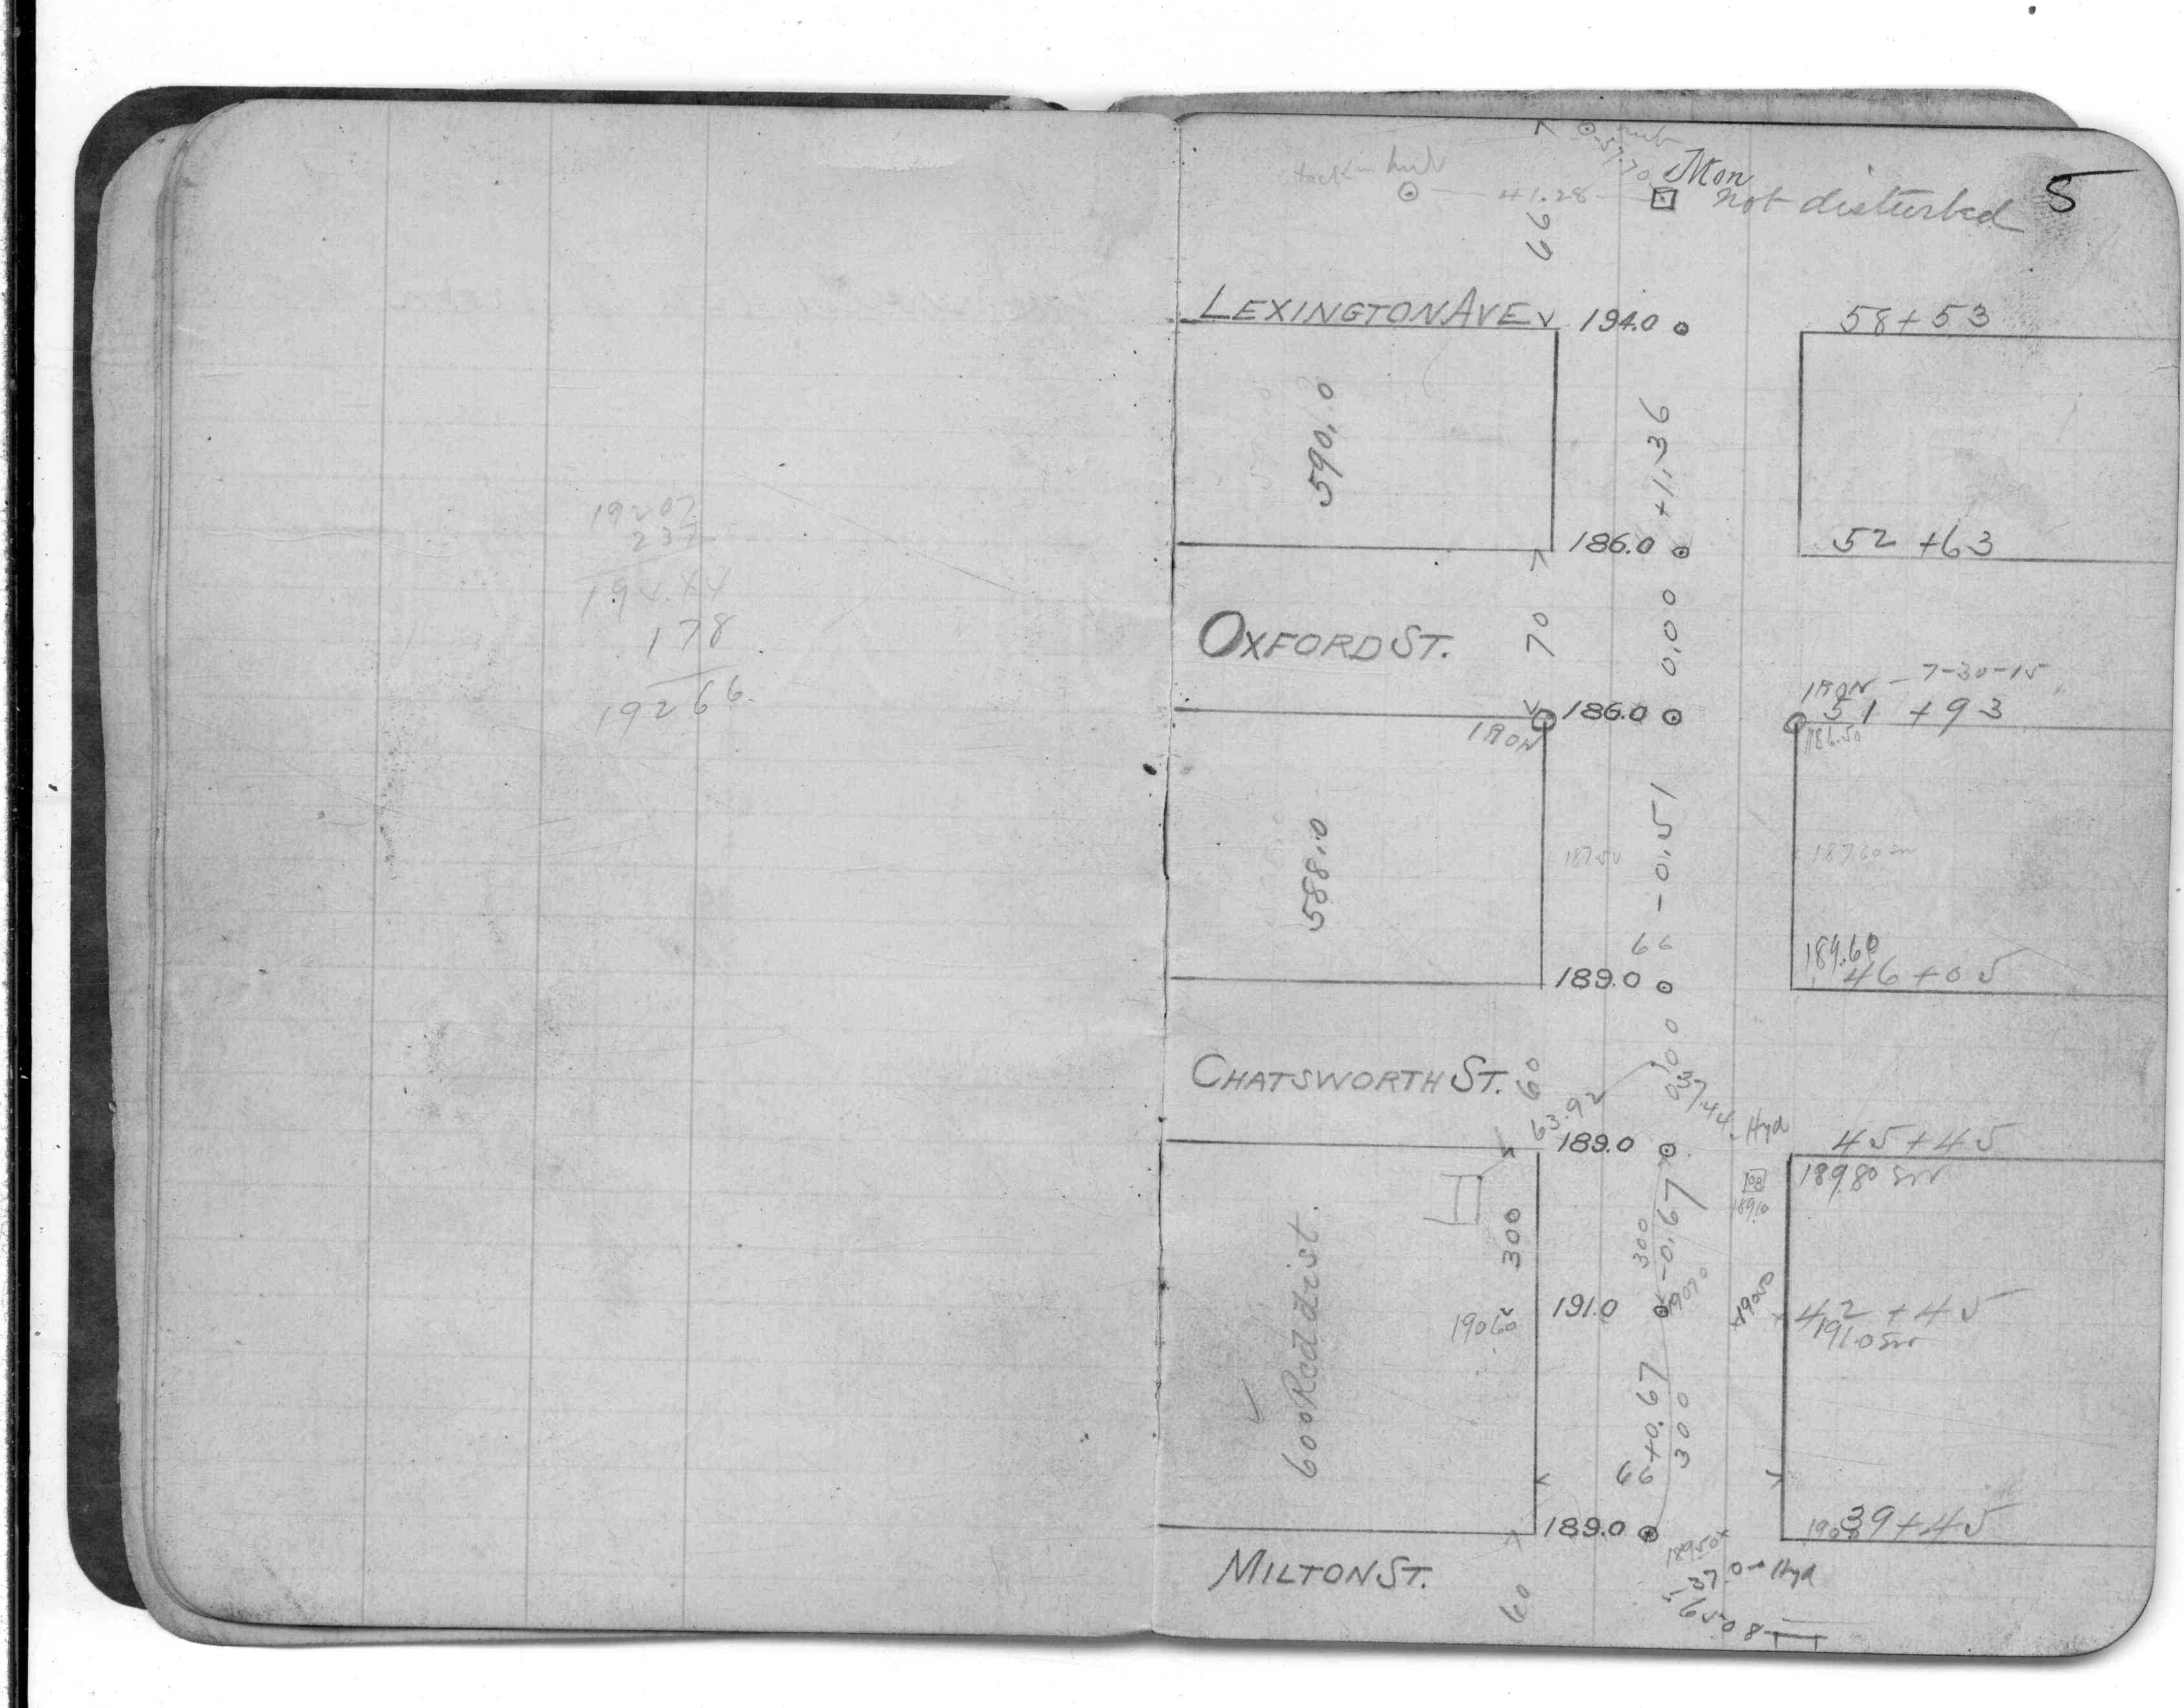 19207
237
194.44
178
19266
5
hub
57.70
Mon
tack in hub
41.28
Not disturbed
66
LEXINGTON AVE
194.0
58+53
590.0
+1.36
186.0
52+63
OXFORD ST.
70
0.00
IRON - 7-30-15
186.0
51+93
IRON
186.50
588.0
-0.51
187.50
187.60 SW
66
189.60
189.0
46+05
CHATSWORTH ST.
60
0.00
63.92
37.44 Hyd
189.0
45+45
189.80 SW
CB
189.10
300
300
-0.67
600 Rec'd dist.
190.60
191.0
190.70
190.50
42+45
191.0 SW
+0.67
300
66
189.0
39+45
189.50
MILTON ST.
60
37.0 Hyd
65.08